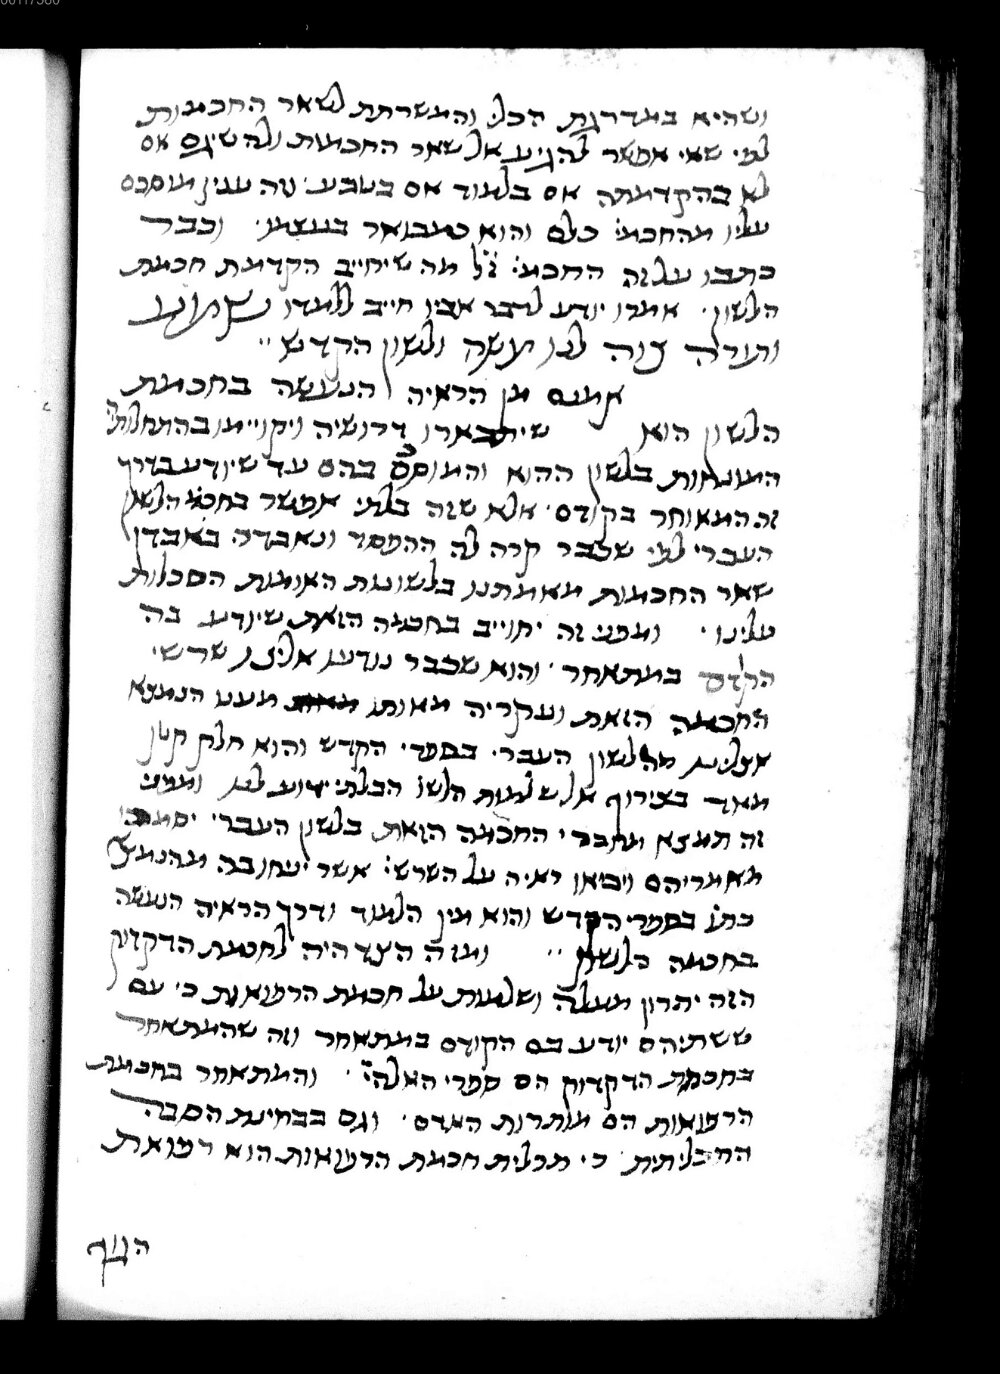 ושהיא במדרגת הכלי והמשרתת לשאר החכמות
לפי שאי אפשר להגיע אל שאר החכמות ולהשיגם אם
לא בהקדמתה אם בלמוד אם בטבע וזה ענין מוסכם
עליו מהחכמי' כלם והוא כמבואר בעצמו · וכבר
כתבו על זה החכמי' ז"ל מה שיחייב הקדמת חכמת
הלשון · אמרו יודע לדבר אביו חייב ללמדו שמע
ותורה צוה לנו משה ולשון הקדש ··
אמנם מן הראיה הנעשה בחכמת
הלשון הוא שיתבארו דרושיה ויקויימו בהתחלות
המונחות בלשון ההוא והמוסכם בהם עד שיודע בדרך
זה המאוחר בקודם · אלא שזה בלתי אפשר בחכמ' הלשון
העברי לפי שכבר קרה לה ההפסד ונאבדה באבדן
שאר החכמות מאתנו בלשונות האומות הסכלות
עלינו · ומפני זה יחוייב בחכמה הזאת שיודע בה
הקודם במתאחר · והוא שכבר נודעו אצלנו שרשי
החכמה הזאת ועקריה מאותו מעט הנמצא
אצלינו מהלשון העברי בספרי הקדש והוא חלק קטן
מאד בצירוף אל שלמות הלשו' הבלתי ידוע לנו ומפני
זה תמצא מחברי החכמה הזאת בלשון העברי יסמכו
מאמריהם ויביאו ראיה על השרשי' אשר יניחו בה מהנמצא
כתו' בספרי הקדש והוא מין הלמוד ודרך הראיה הנעשה
בחכמה הלשון ·· ומזה הצד היה לחכמת הדקדוק
הזה יתרון מעלה ושלמות על חכמת הרפואות כי עם
ששתיהם יודע בם הקודם במתאחר וזה שהמתאחר
בחכמת הדקדוק הם ספרי האלהי' · והמתאחר בחכמת
הרפואות הם מותרות האדם · וגם בבחינת הסבה
התכליתית כי תכלית חכמת הרפואות הוא רפואת
הגוף